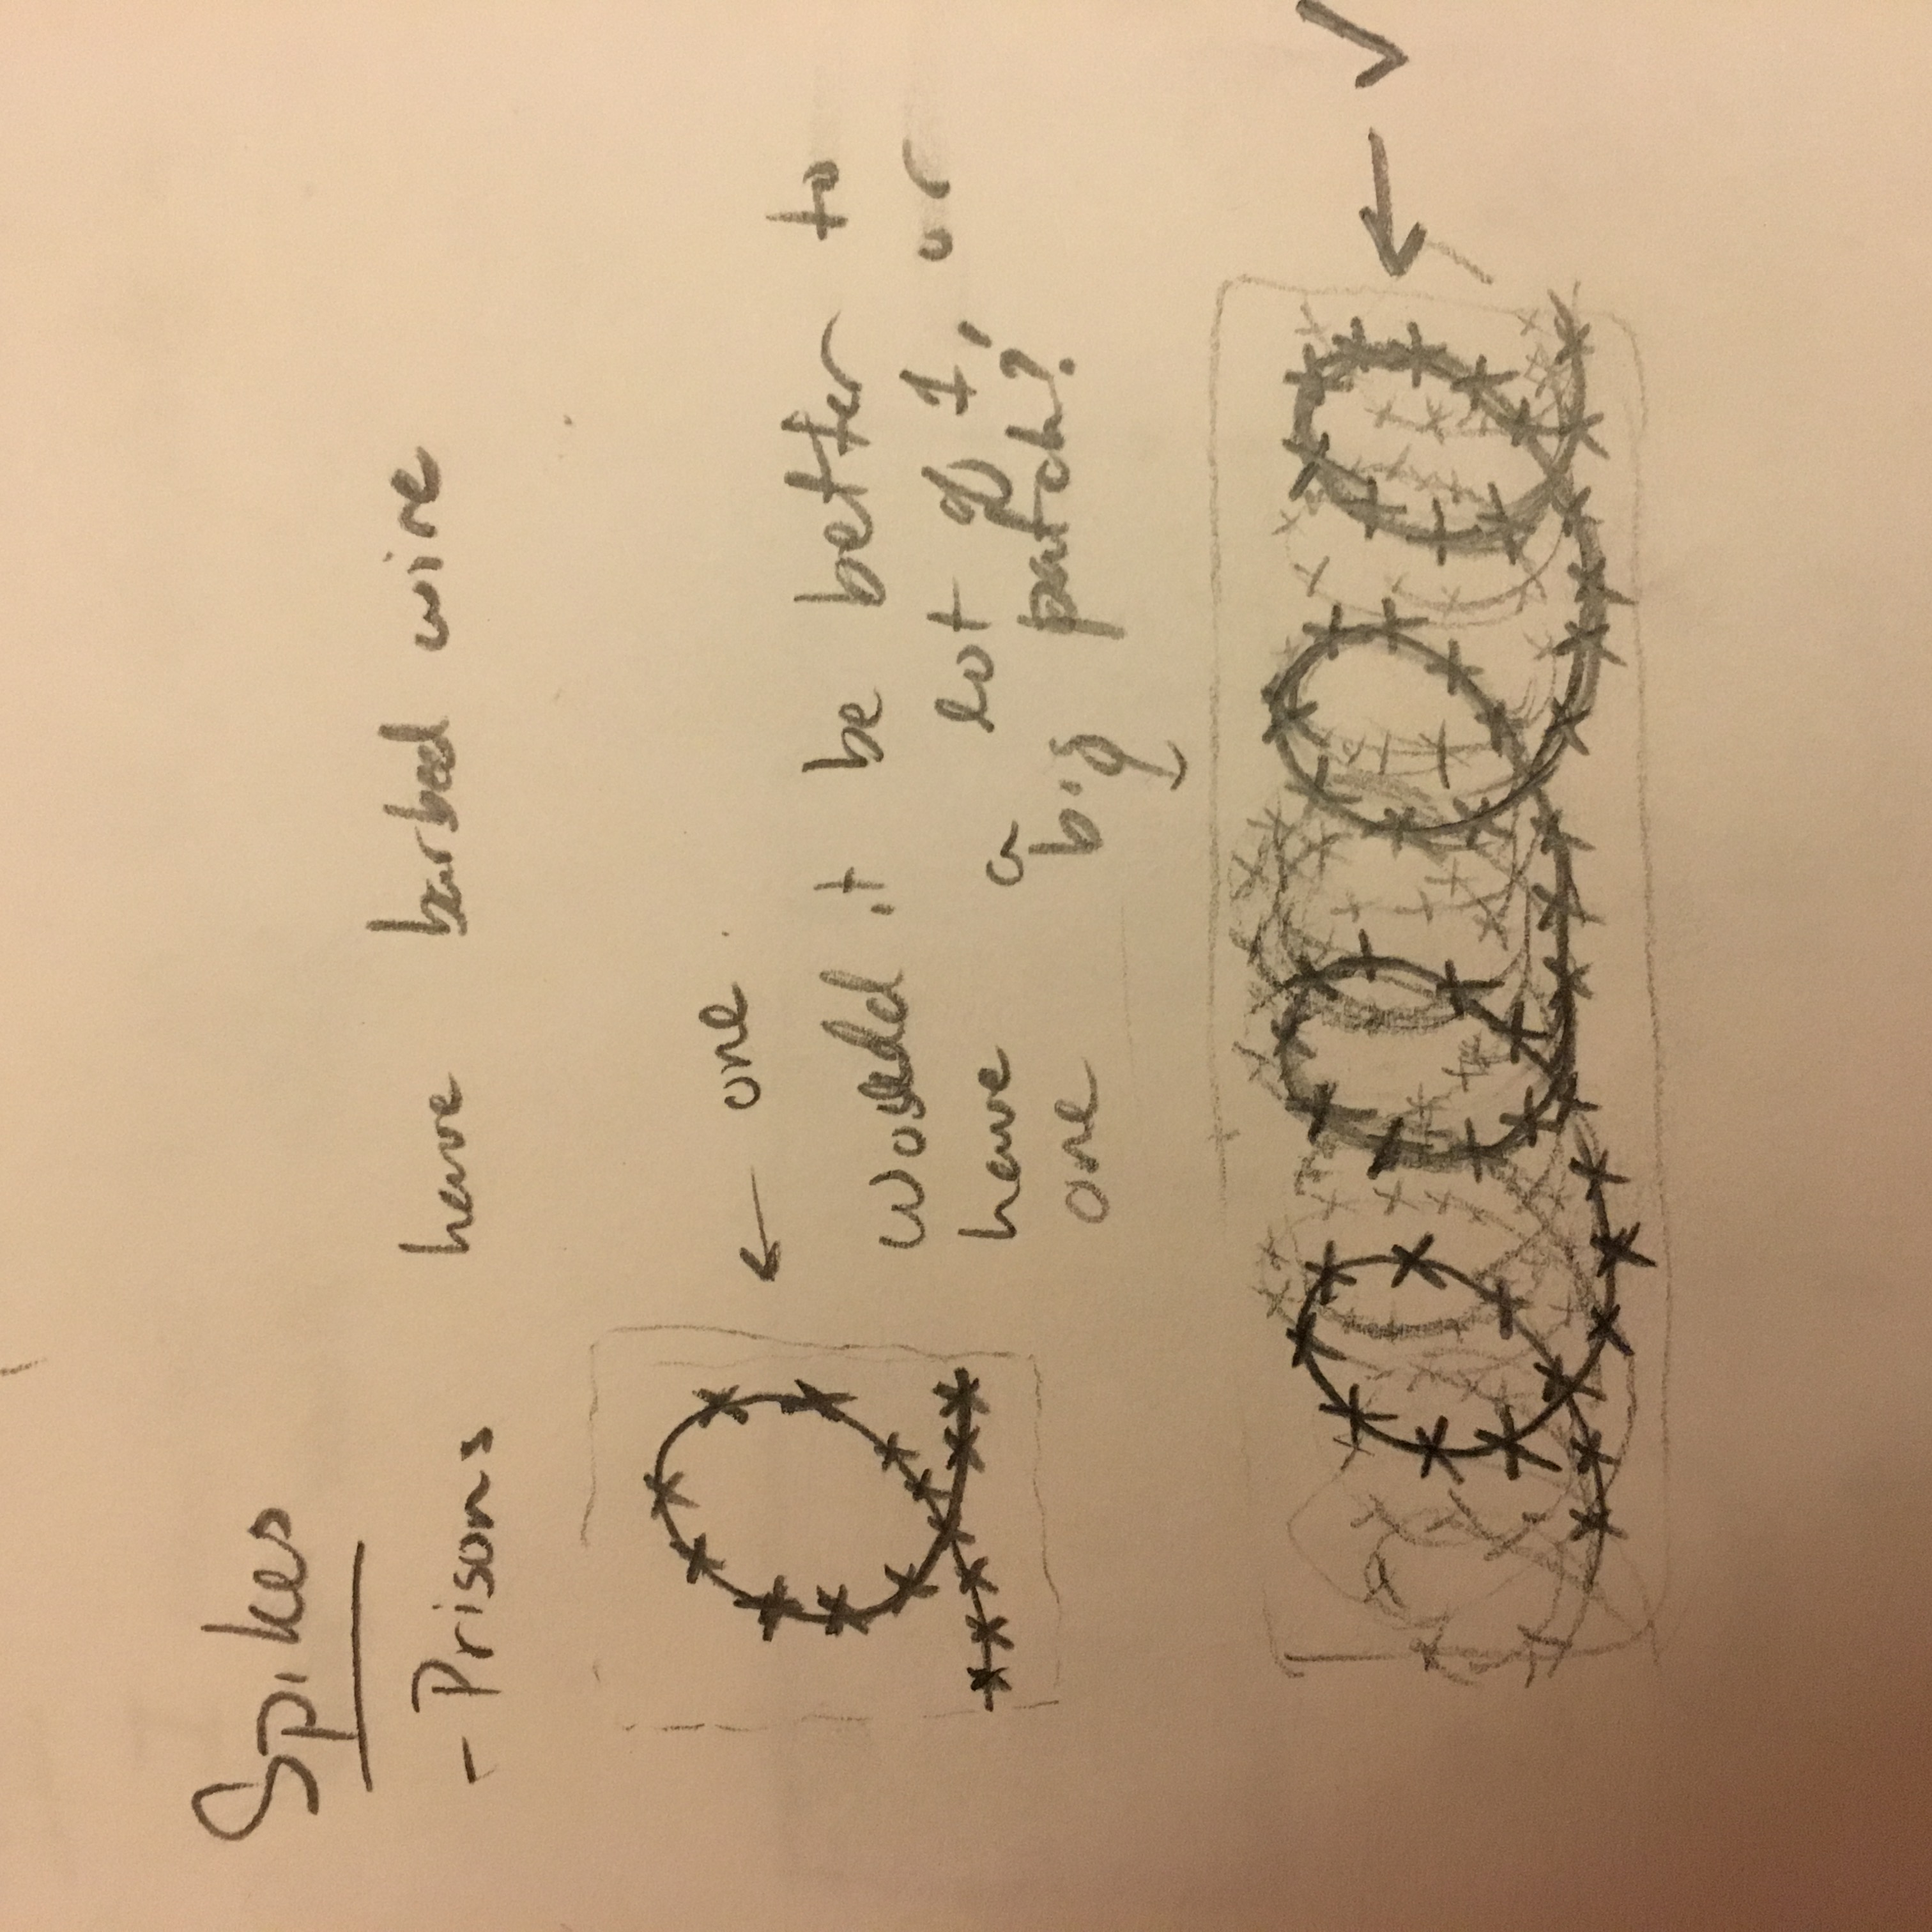 Spikes
- Prisons have barbed wire
← one
Would it be better to
have a lot of 1, or
one big patch?
↓
← ✓